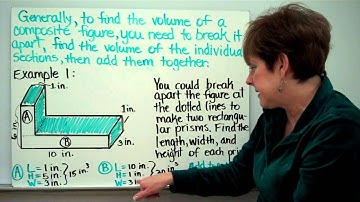 Generally, to find the volume of a
composite figure, you need to break it
apart, find the volume of the individual
sections, then add them together.
Example 1:
1 in.
A
6 in.
1 in.
B
3 in.
10 in.
You could break
apart the figure at
the dotted lines to
make two rectangu-
lar prisms. Find the
length, width, and
height of each
A L = 1 in.
H = 5 in.
W = 3 in.
15 in³
B L = 10 in.
H = 1 in.
W = 3 in